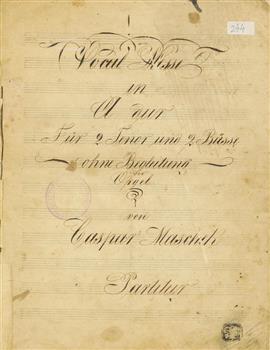 244
Vocal Messe
in
A dur
Für 2 Tenor und 2 Bässe
ohne Begleitung
der
Orgel
von
Caspar Maschek
Partitur